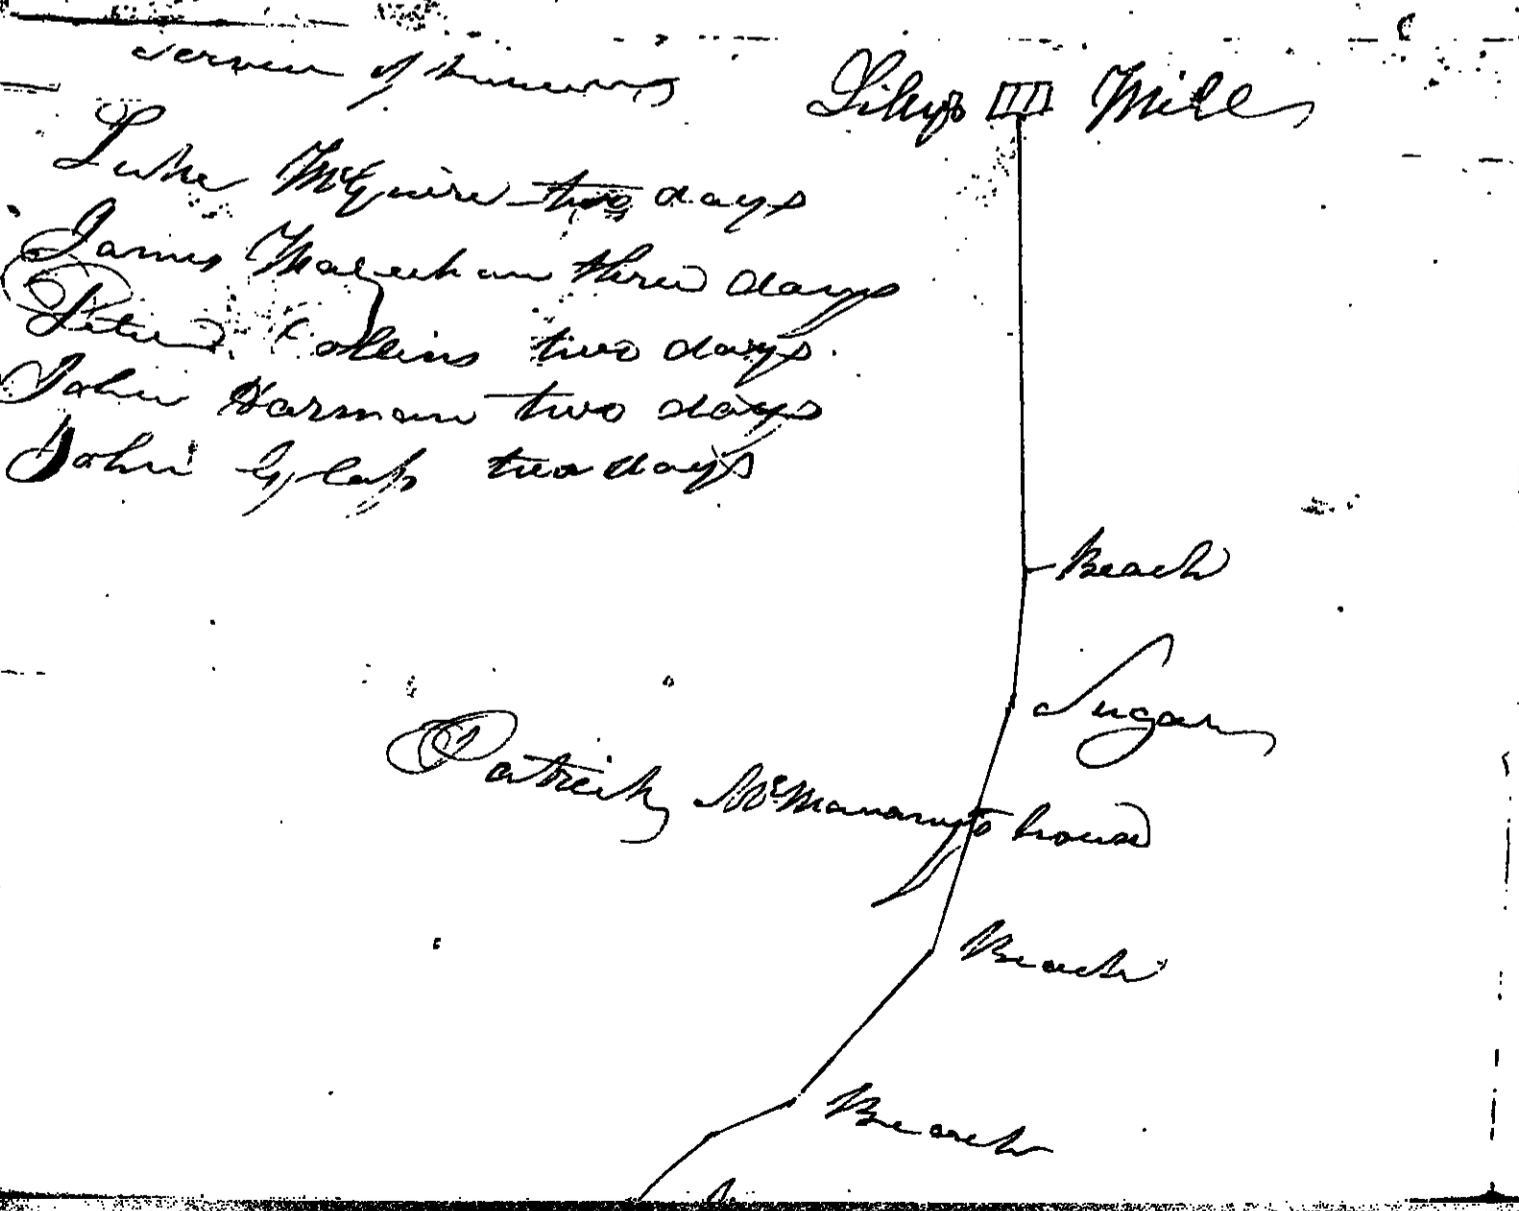 service of viewers
Luke McGuire two days
James Mageehan three days
Peter Collins two days
John Harman two days
John Glass two days
Mill
Beach
Sugar
Patrick McManamys house
Beach
Beach